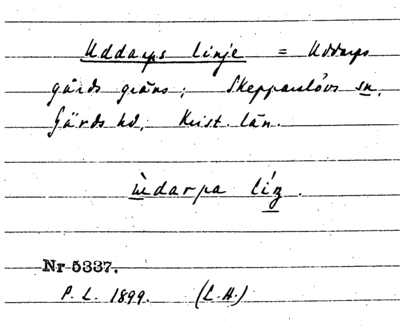 Uddarps linje = Uddarps
gårds gräns; Skepparslövs sn,
Gärds hd, Krist. län.
ùdarpa líŋ.
Nr 5337.
P. L. 1899. (L.H.)